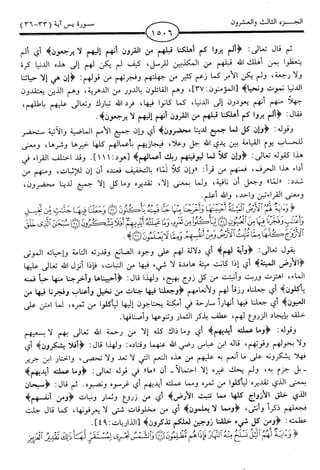 الجزء الثالث والعشرون
١٥٠٦
سورة يس آية (٣٣-٣٦)
ثم قال تعالى: ﴿ألم يروا كم أهلكنا قبلهم من القرون أنهم إليهم لا يرجعون﴾ أي ألم
يتعظوا بمن أهلك الله قبلهم من المكذبين للرسل، كيف لم يكن لهم إلى هذه الدنيا كرة
ولا رجعة، ولم يكن الأمر كما زعم كثير من جهلتهم وفجرتهم من قولهم: ﴿إن هي إلا حياتنا
الدنيا نموت ونحيا﴾ [المؤمنون: ٣٧]، وهم القائلون بالدور من الدهرية، وهم الذين يعتقدون
جهلاً منهم أنهم يعودون إلى الدنيا، كما كانوا فيها، فرد الله تبارك وتعالى عليهم باطلهم،
فقال: ﴿ألم يروا كم أهلكنا قبلهم من القرون أنهم إليهم لا يرجعون﴾.
وقوله: ﴿وإن كل لما جميع لدينا محضرون﴾ أي وإن جميع الأمم الماضية والآتية ستحضر
للحساب يوم القيامة بين يدي الله جل وعلا، فيجازيهم بأعمالهم كلها خيرها وشرها، ومعنى
هذا كقوله تعالى: ﴿وإن كلاً لما ليوفينهم ربك أعمالهم﴾ [هود: ١١١]. وقد اختلف القراء في
أداء هذا الحرف، فمنهم من قرأ: ﴿وإن كلاً لما﴾ بالتخفيف فعنده أن إن للإثبات، ومنهم من
شدد: «لمّا» وجعل أن نافية، ولما بمعنى إلا، تقديره وما كل إلا جميع لدينا محضرون،
ومعنى القراءتين واحد، والله أعلم.
وَءَايَةٌ لَّهُمُ ٱلْأَرْضُ ٱلْمَيْتَةُ أَحْيَيْنَٰهَا وَأَخْرَجْنَا مِنْهَا حَبًّا فَمِنْهُ يَأْكُلُونَ ۝ وَجَعَلْنَا فِيهَا جَنَّٰتٍ مِّن نَّخِيلٍ
وَأَعْنَٰبٍ وَفَجَّرْنَا فِيهَا مِنَ ٱلْعُيُونِ ۝ لِيَأْكُلُوا۟ مِن ثَمَرِهِۦ وَمَا عَمِلَتْهُ أَيْدِيهِمْ أَفَلَا يَشْكُرُونَ ۝ سُبْحَٰنَ ٱلَّذِى خَلَقَ
ٱلْأَزْوَٰجَ كُلَّهَا مِمَّا تُنۢبِتُ ٱلْأَرْضُ وَمِنْ أَنفُسِهِمْ وَمِمَّا لَا يَعْلَمُونَ ۝
يقول تعالى: ﴿وآية لهم﴾ أي دلالة لهم على وجود الصانع وقدرته التامة وإحيائه الموتى
﴿الأرض الميتة﴾ أي إذا كانت ميتة هامدة لا شيء فيها من النبات، فإذا أنزل الله تعالى عليها
الماء، اهتزت وربت وأنبتت من كل زوج بهيج، ولهذا قال: ﴿أحييناها وأخرجنا منها حباً فمنه
يأكلون﴾ أي جعلناه رزقاً لهم ولأنعامهم ﴿وجعلنا فيها جنات من نخيل وأعناب وفجرنا فيها من
العيون﴾ أي جعلنا فيها أنهاراً سارحة في أمكنة يحتاجون إليها ليأكلوا من ثمره، لما امتن على
خلقه بإيجاد الزروع لهم، عطف بذكر الثمار وتنوعها وأصنافها.
وقوله: ﴿وما عملته أيديهم﴾ أي وما ذاك كله إلا من رحمة الله تعالى بهم لا بسعيهم
ولا بحولهم وقوتهم، قاله ابن عباس رضي الله عنهما وقتادة: ولهذا قال: ﴿أفلا يشكرون﴾ أي
فهلا يشكرونه على ما أنعم به عليهم من هذه النعم التي لا تعد ولا تحصى، واختار ابن جرير
ـ بل جزم به، ولم يحك غيره إلا احتمالاً ـ أن «ما» في قوله تعالى: ﴿وما عملته أيديهم﴾
بمعنى الذي تقديره ليأكلوا من ثمره ومما عملته أيديهم أي غرسوه ونصبوه. ثم قال: ﴿سبحان
الذي خلق الأزواج كلها مما تنبت الأرض﴾ أي من زروع وثمار ونبات ﴿ومن أنفسهم﴾
فجعلهم ذكراً وأنثى، ﴿ومما لا يعلمون﴾ أي من مخلوقات شتى لا يعرفونها، كما قال جلت
عظمته: ﴿ومن كل شيء خلقنا زوجين لعلكم تذكرون﴾ [الذاريات: ٤٩].
وَءَايَةٌ لَّهُمُ ٱلَّيْلُ نَسْلَخُ مِنْهُ ٱلنَّهَارَ فَإِذَا هُم مُّظْلِمُونَ ۝ وَٱلشَّمْسُ تَجْرِى لِمُسْتَقَرٍّ لَّهَا ذَٰلِكَ تَقْدِيرُ ٱلْعَزِيزِ